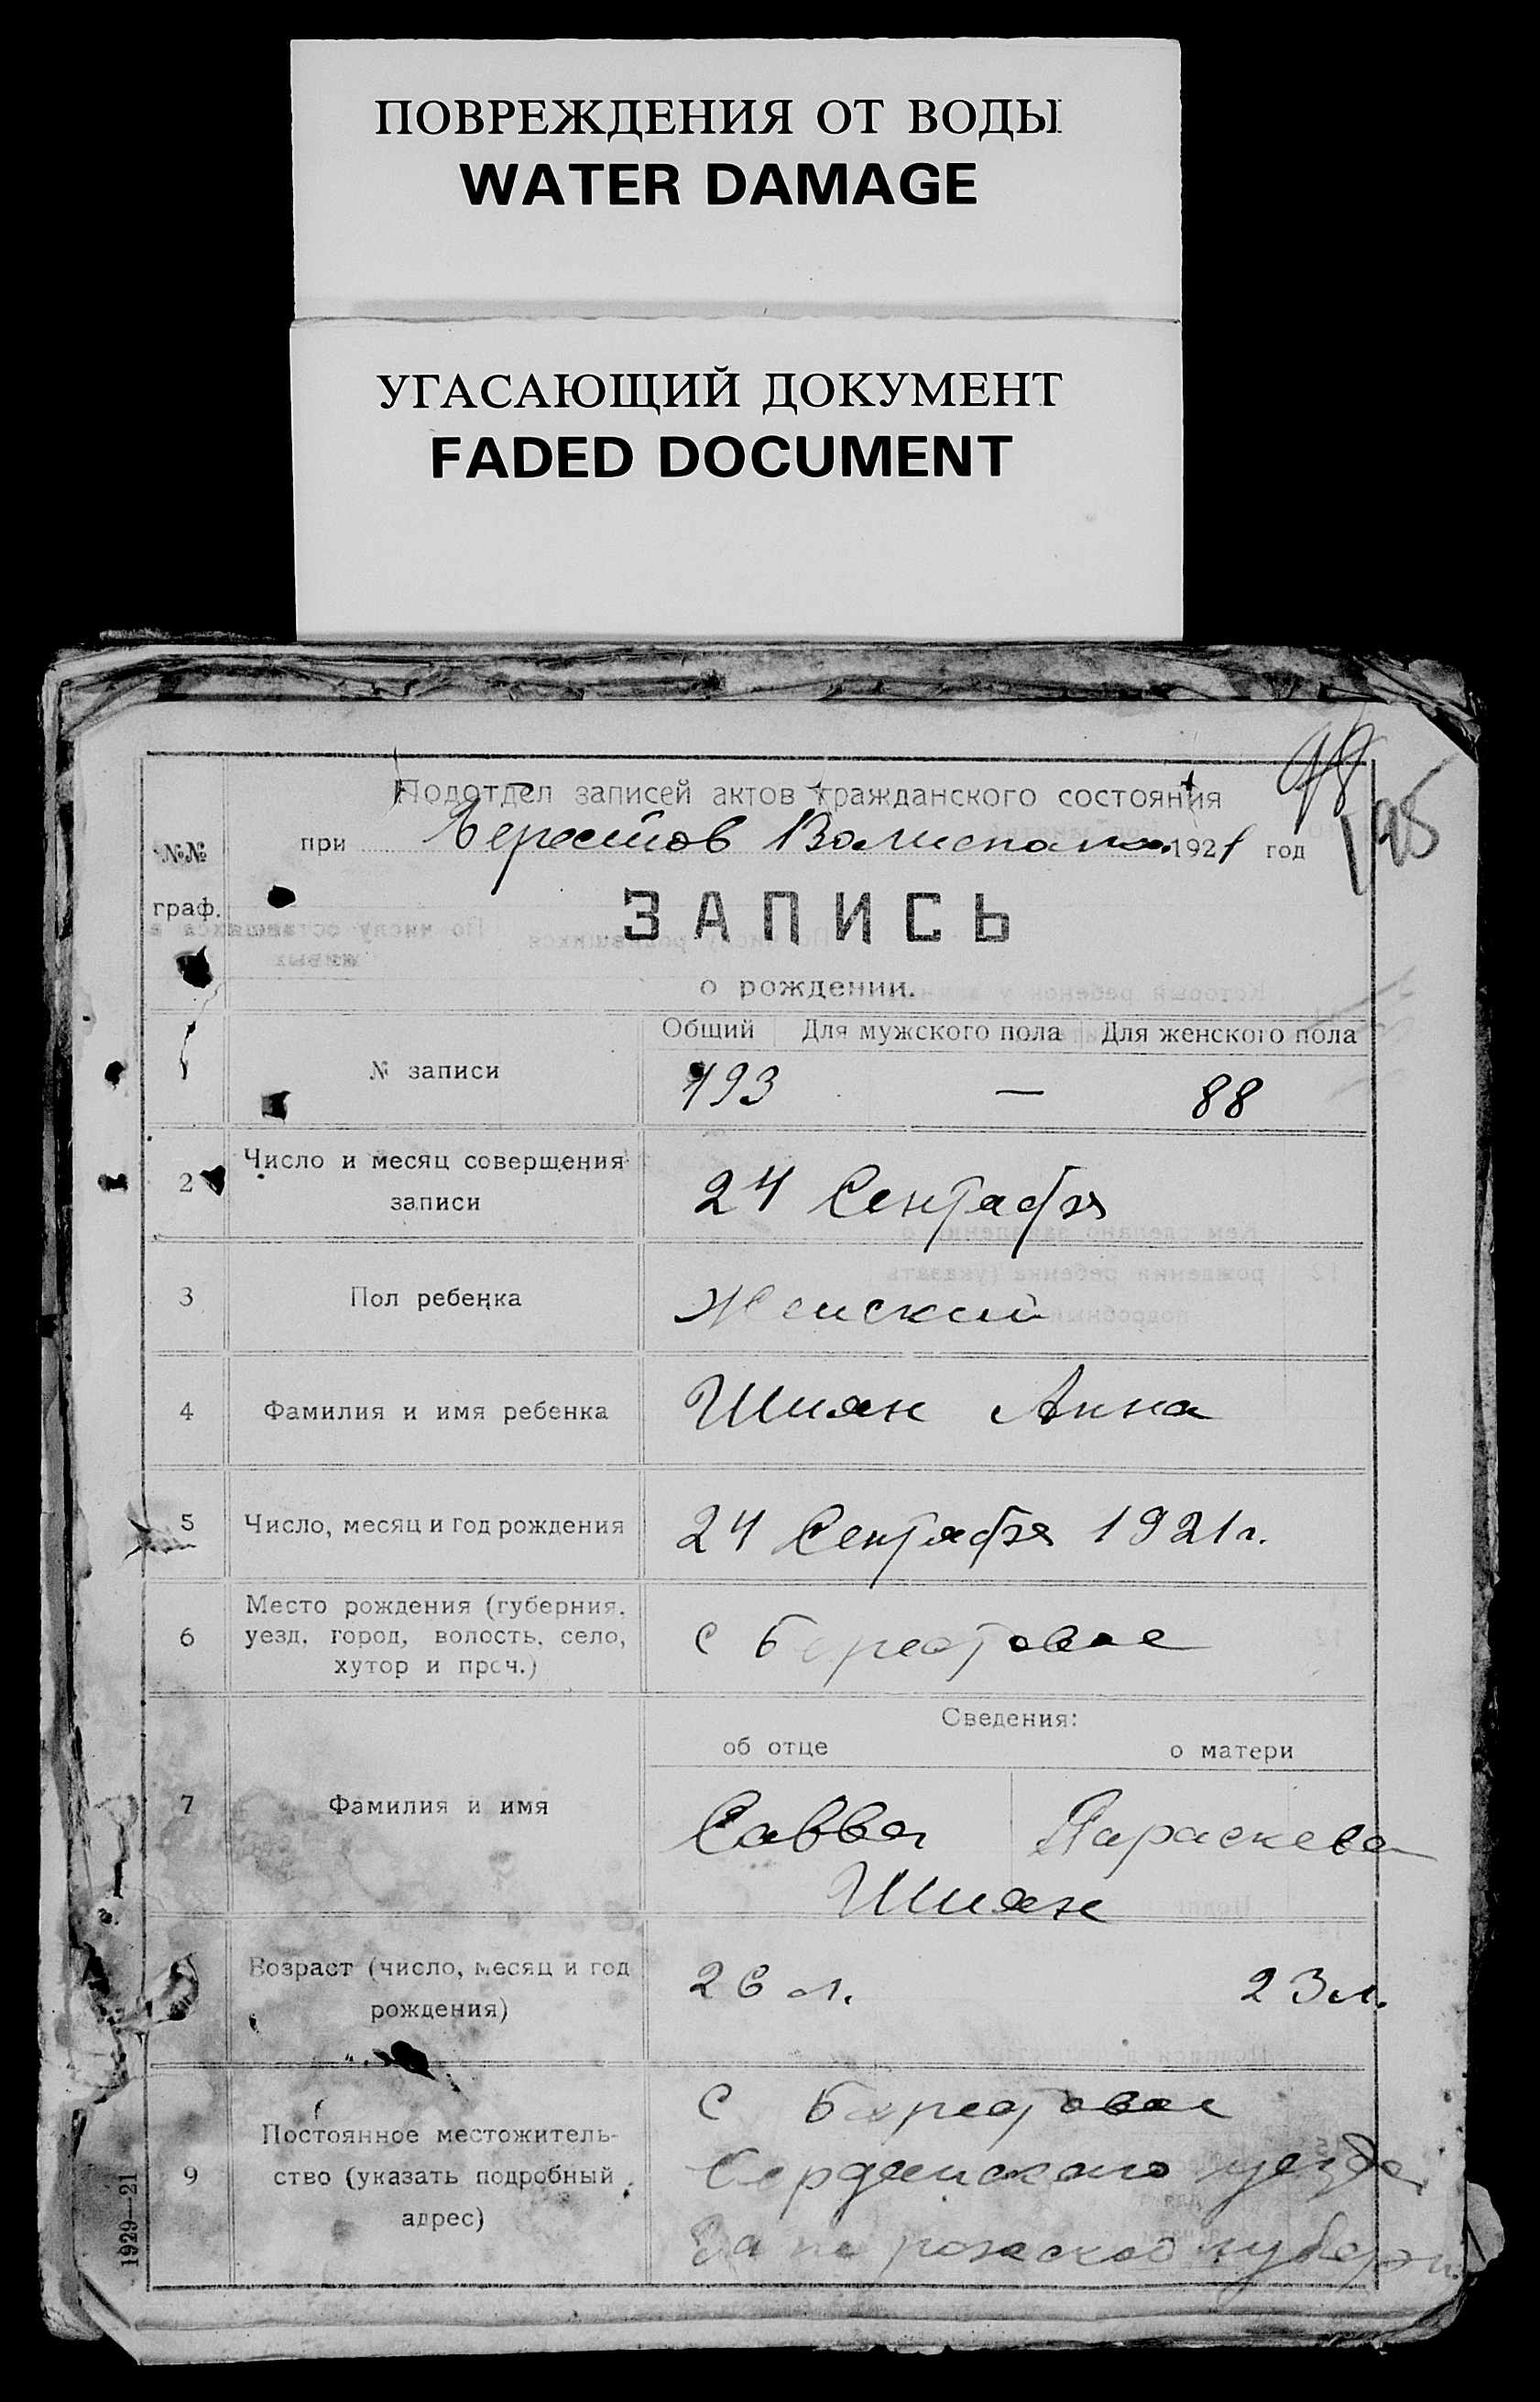 ПОВРЕЖДЕНИЯ ОТ ВОДЫ
WATER DAMAGE
УГАСАЮЩИЙ ДОКУМЕНТ
FADED DOCUMENT
98
125
Подотдел записей актов гражданского состояния
при Берестов Волисполко. 1921 год
№№ граф.
ЗАПИСЬ
о рождении.
Общий Для мужского пола Для женского пола
1 № записи 193 — 88
2 Число и месяц совершения
записи
24 Сентября
3 Пол ребенка Женский
4 Фамилия и имя ребенка Шиян Анна
5 Число, месяц и год рождения 24 Сентября 1921 г.
Место рождения (губерния,
6 уезд, город, волость, село,
хутор и проч.)
с Берестовое
Сведения:
об отце о матери
7 Фамилия и имя Савва Параскева
Шиян
Возраст (число, месяц и год
рождения)
26 л. 23 л.
с Берестовое
Постоянное местожитель-
9 ство (указать подробный
адрес)
Бердянского уезда
Запорожской губерн.
1929—21